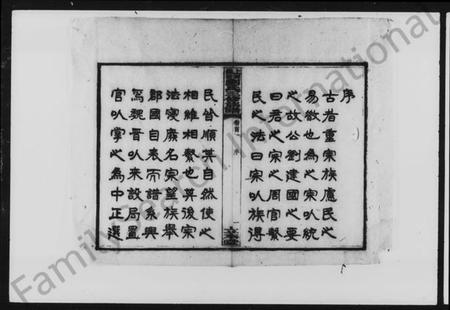 序
古昔重宗族慮民之
易散也為之宗以統
之故公劉建國之要
曰君之宗之周官繫
民之法曰宗以族得
民皆順其自然使之
相維相繫也其後宗
法寖廢名宗望族舉
郡國自表而譜系興
焉魏晉以來設局置
官以掌之為中正選
卷首
序
FamilySearch International